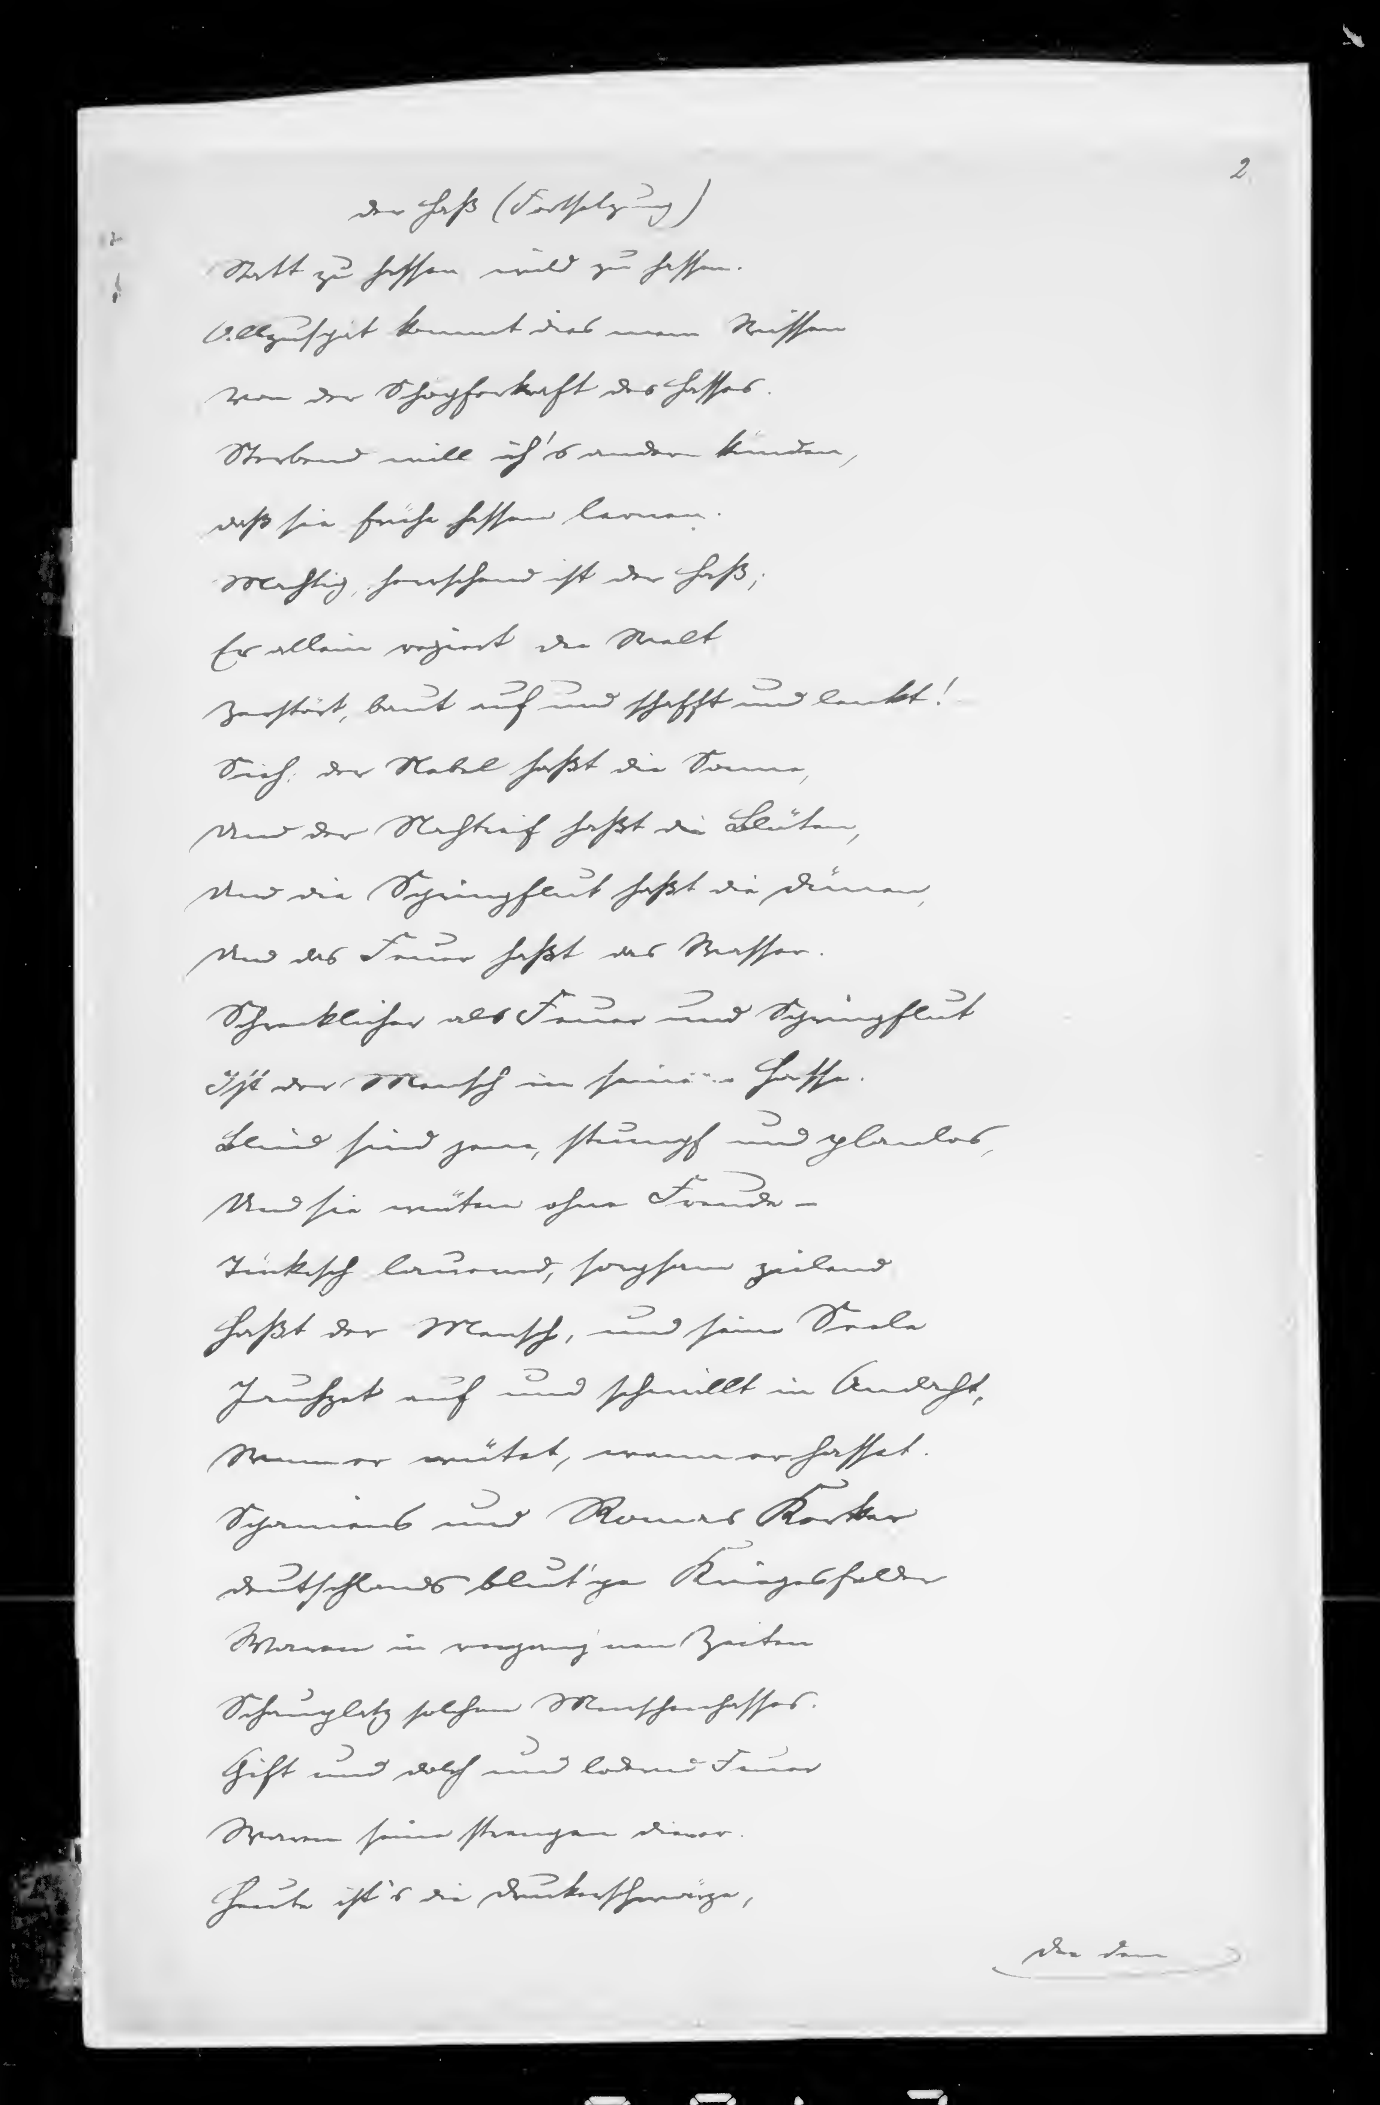 2.
Der Haß (Fortsetzung)
Statt zu hassen wild zu hassen.
Allzuspät kommt dies mein Wissen
Von der Schöpferkraft des Hasses.
Sterbend will ich's andern künden,
Daß sie frühe hassen lernen.
Mächtig, herrschend ist der Haß;
Er allein regiert die Welt
Zerstört, baut auf und schafft und lenkt!
Sieh: der Nebel haßt die Sonne,
Und der Nachtreif haßt die Blüten,
Und die Springflut haßt die Dünen,
Und das Feuer haßt das Wasser.
Schrecklicher als Feuer und Springflut
Ist der Mensch in seinem Hasse.
Blind sind jene, stumpf und planlos,
Und sie wüten ohne Freude –
Tückisch lauernd, sorgsam zielend
Haßt der Mensch, und seine Seele
Jauchzet auf und schwillt in Andacht,
Wenn er wütet, wenn er hasset.
Spaniens und Romas Kerker
Deutschlands blut'ge Kriegesfelder
Waren in vergang'nen Zeiten
Schauplatz solchen Menschenhasses.
Gift und Dolch und lodernd Feuer
Waren seine strengen Diener.
Heute ist's die Druckerschwärze,
Die dem